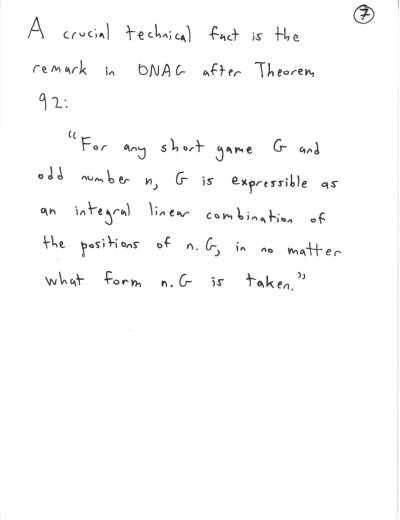 7
A crucial technical fact is the
remark in ONAG after Theorem
92:
"For any short game G and
odd number n, G is expressible as
an integral linear combination of
the positions of n.G, in no matter
what form n.G is taken."